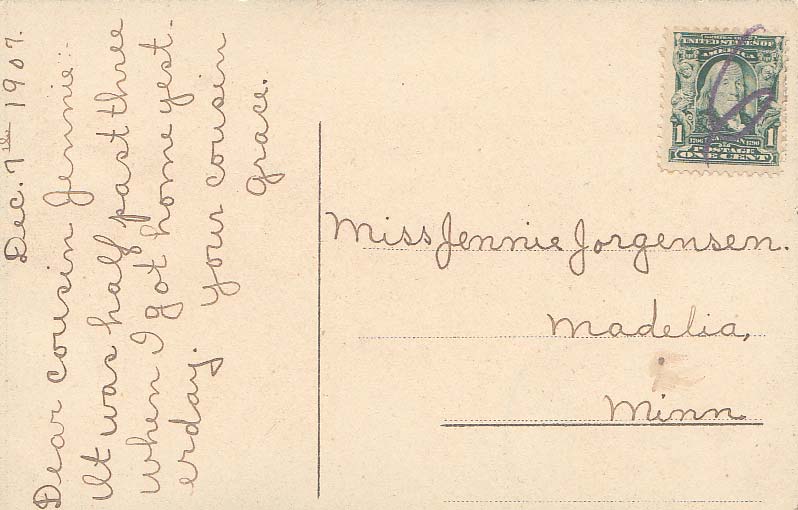 Dec. 7th 1907.
Dear cousin Jennie:
It was half past three
when I got home yest-
erday. your cousin
Grace.
UNITED STATES OF
AMERICA
1 1
POSTAGE
ONE CENT
Miss Jennie Jorgensen.
Madelia,
Minn.